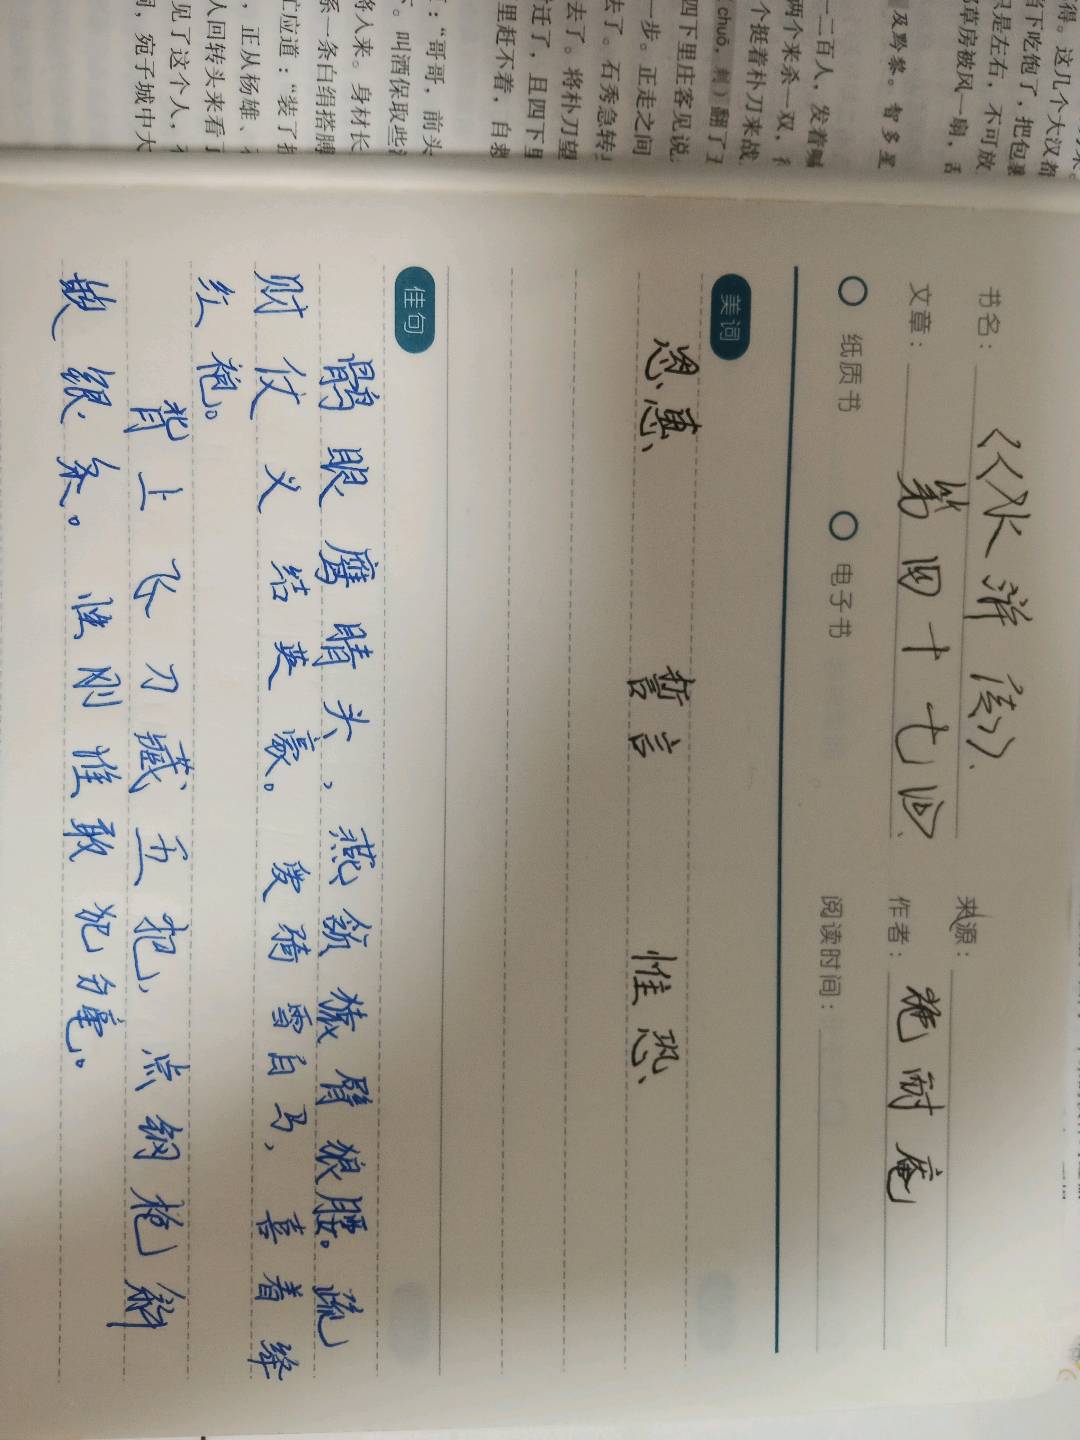 得。这几个大汉都
当下吃饱了，把包裹
只是左右，不可放
那草房被风一扇，
及黔黎。智多星
一二百人，发着喊
两个来杀一双，
个挺着朴刀来战
chuō。刺）翻了五
四下里庄客见说
一步。正走之间
去了。石秀急转
去了。将朴刀望
迁了，且四下里
里赶不着，白救
：“哥哥，前头
。叫酒保取些
将人来。身材长
系一条白绢搭膊
忙应道：“装了
，正从杨雄、
人回转头来看了
见了这个人，
，宛子城中大
书名：《水浒传》 来源：
文章：第四十七回 作者：施耐庵
纸质书 电子书 阅读时间：
美词
恩惠 誓言 惟恐
佳句
鹘眼鹰睛头，燕颔猿臂狼腰。疏
财仗义结英豪。爱骑雪白马，喜着绛
红袍。
背上飞刀藏五把，点钢枪斜
嵌银条。性刚惟敢犯分毫。